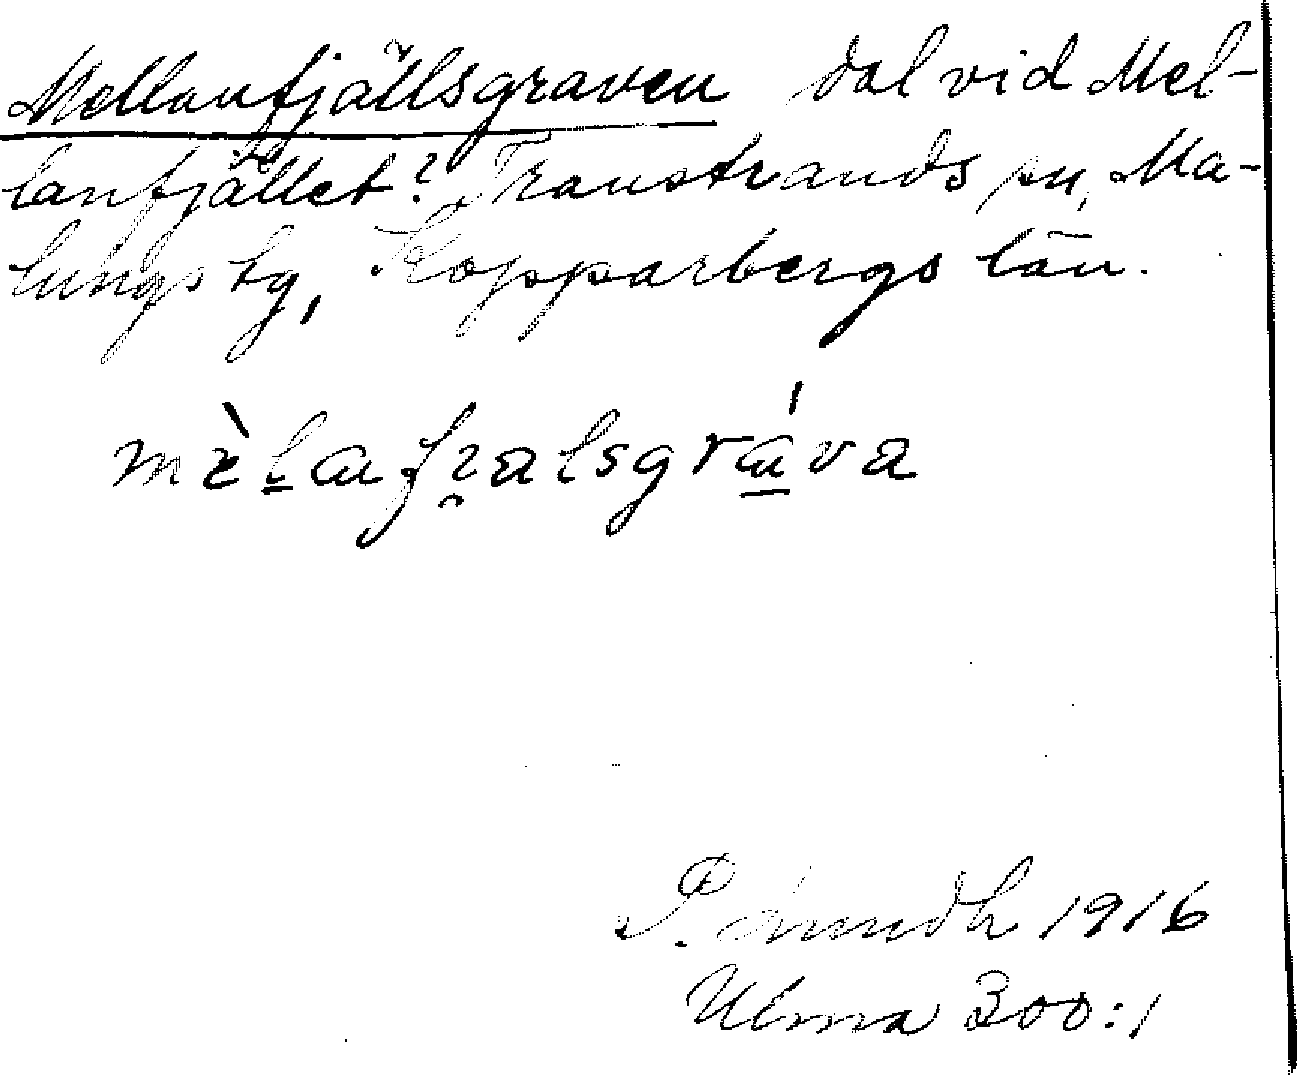 Mellanfjällsgraven dal vid Mel-
lanfjället? Transtrands sn, Ma-
lungs tg, Kopparbergs län.
mὲlafɿalsgráva
P. 1916
Ulma 300:1